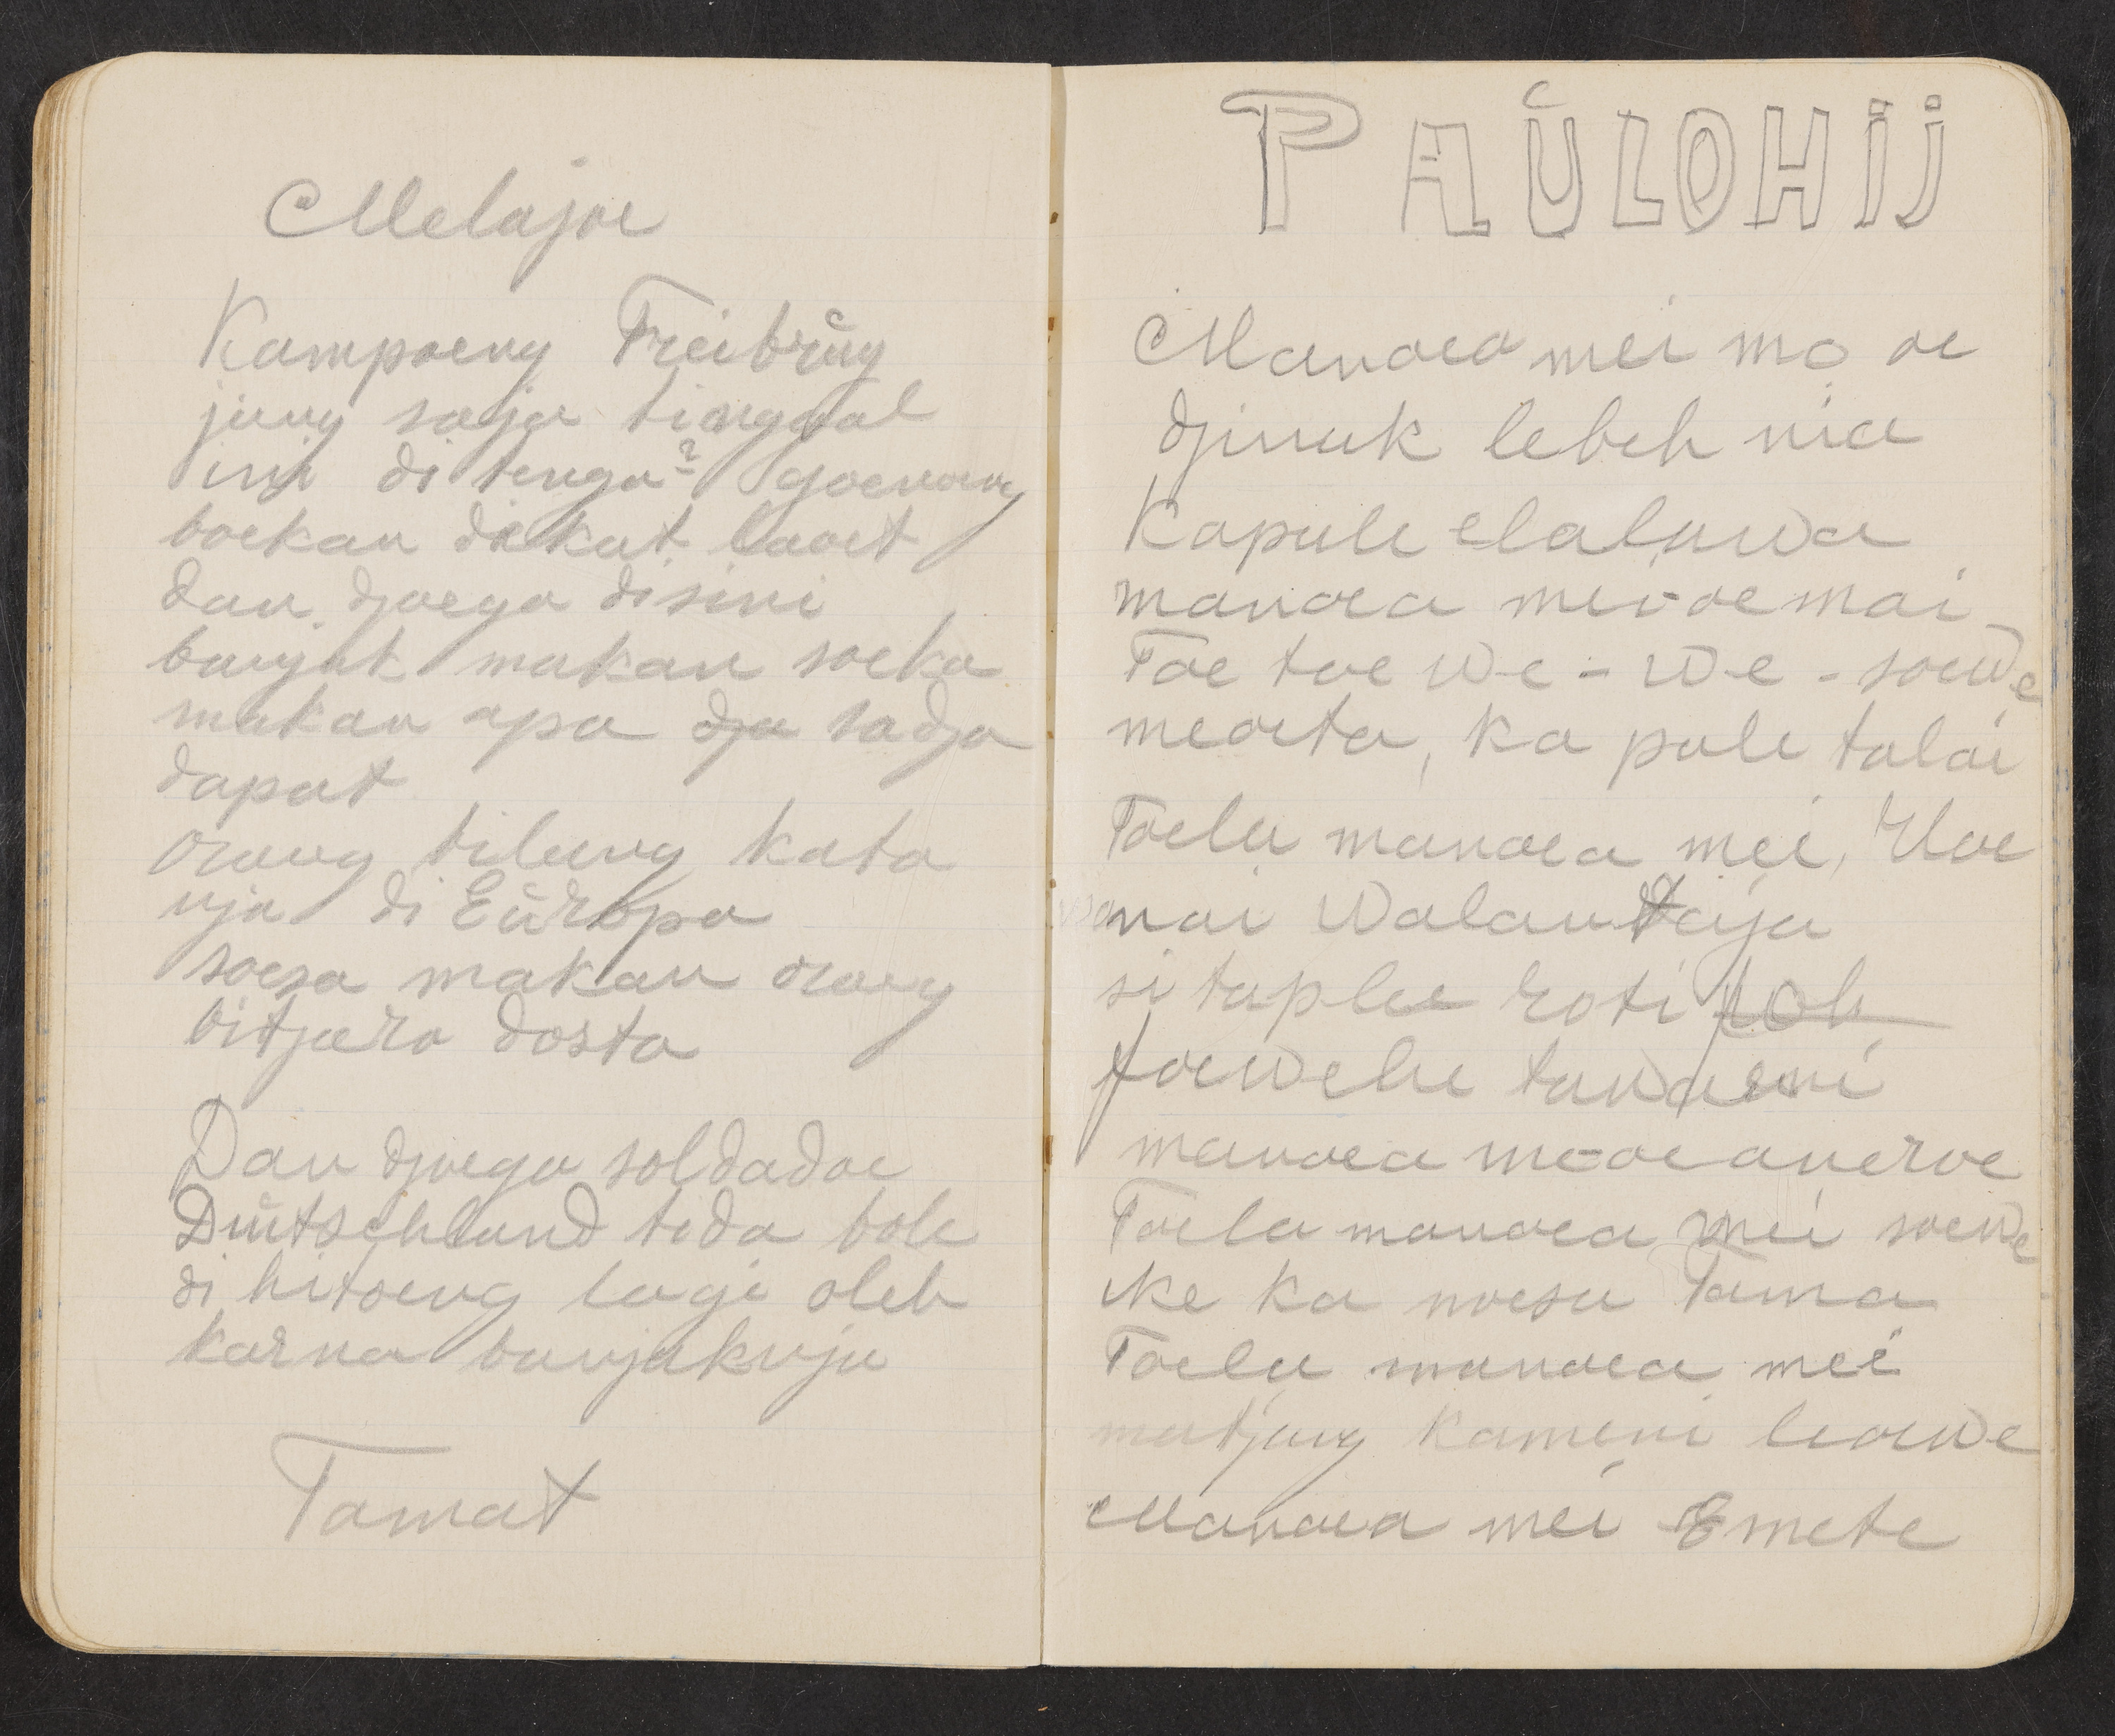 Melajoe
Kampoeng Freibŭrg
jang saja tinggal
ini di tenga² goenoeng
boekan dekat laoet
dan djoega disini
banjak makan soeka
makan apa dja sadja
dapat
orang bilang kata
nja di Eŭropa
soesa makan orang
bitjara dosta
Dan djoega soldadoe
Dŭitschland tida bole
di hitoeng lagi oleh
karna banjaknja
Tamat
PAŬLOHIJ
Manoea mei mo oe
djinak lebeh nia
Kapale elaluwa
manoea mei-oe mai
Toe toe we-we-soewe
meoeta, ka pale taloi
Toela manoea mei, Roe
nai Walantaija
si taplee roti
foewelie
manoea me-oe aneroe
Toela manoea mei soewe
ike ka noesa Tama
Toela manoea mei
matjang kameni leoewe
Manoea mei Emete